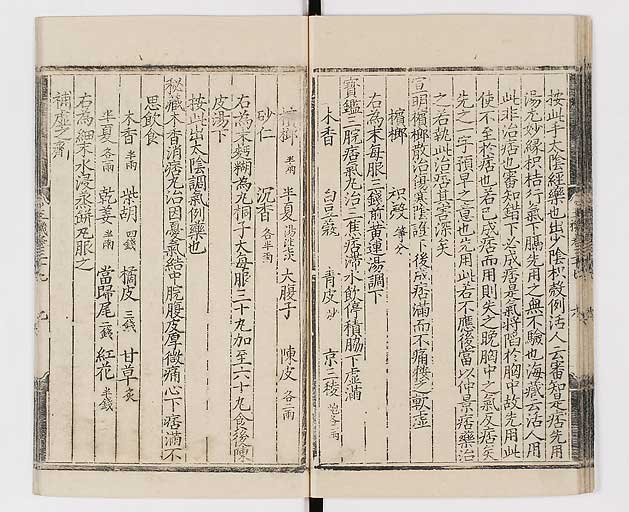 按此手太陰經藥也出少陰枳殼例活人云審知是痞先用
湯尤妙緣枳桔行氣下膈先用之無不驗也海藏云活人用
此非治痞也審知錯下必成痞是氣將陷於胸中故先用此
使不至於痞也若已成痞而用則失之晚胸中之氣反痞矣
先之一字預早之意也先用此若不應後當以仲景痞藥治
之若執此治痞其害深矣
宣明檳榔散治傷寒陰證下後成痞滿而不痛按之軟虛
檳榔 枳殼 等分
右為末每服三錢煎黃連湯調下
寶鑑三脘痞氣丸治三焦痞滯水飲停積脇下虛滿
木香 白豆蔲 青皮 炒 京三稜 炮各一兩
檳榔 半兩 半夏 湯洗 大腹子 陳皮 各二兩
砂仁 沉香 各半兩
右為末麪糊為丸桐子大每服三十丸加至六十丸食後陳
皮湯下
按此出太陰調氣例藥也
秘藏木香消痞丸治因憂氣結中脘腹皮厚微痛心下痞滿不
思飲食
木香 半兩 柴胡 四錢 橘皮 三錢 甘草 炙
半夏 各一兩 乾姜 半兩 當歸尾 二錢 紅花 半錢
右為細末水浸烝餅丸服之
補虛之齊